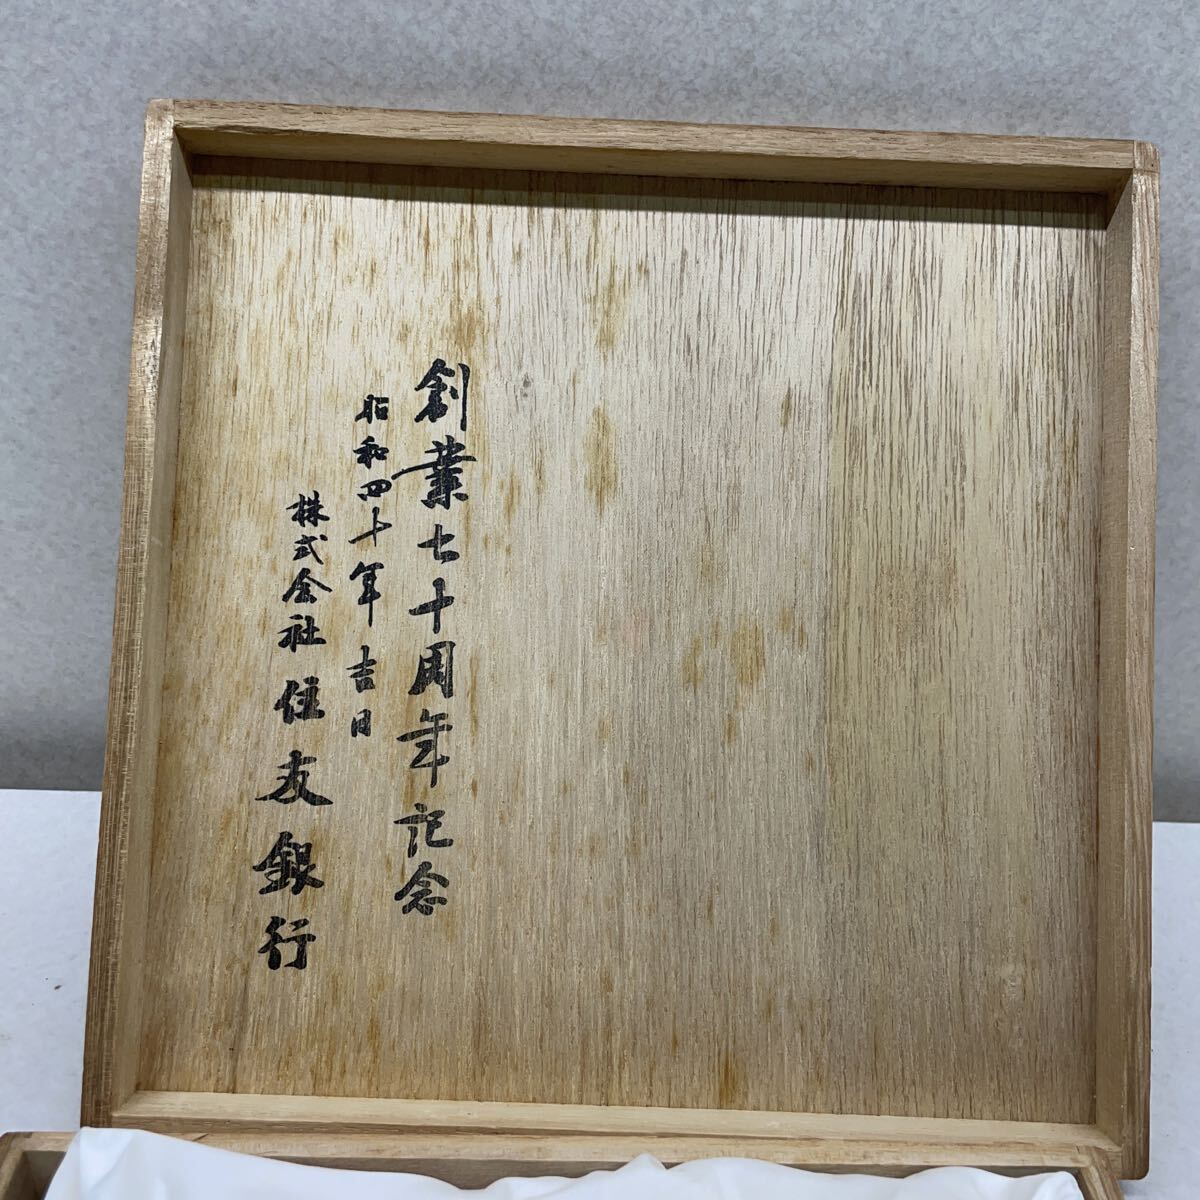 創業七十周年記念
昭和四十年 吉日
株式会社 住友銀行